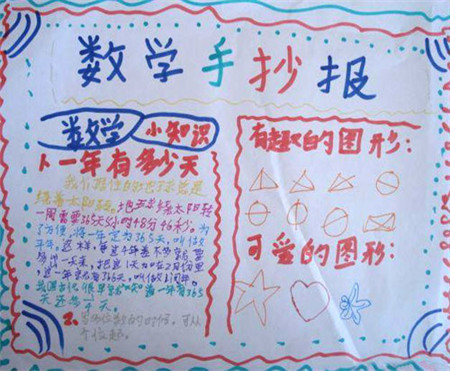 数学手抄报
数学 小知识
1、一年有多少天
我们居住的地球总是
绕着太阳转。地球绕太阳转
一周需要365天5小时48分46秒。为
了方便，将一年定为365天，叫做
平年，这样，每过4年差不多就要
多出一天来，把这1天加在2月份里，
这一年就有366天，叫做闰年。
我国古代很早就知道一年有365
天
2、
个位起。
有趣的图形：
可爱的图形：